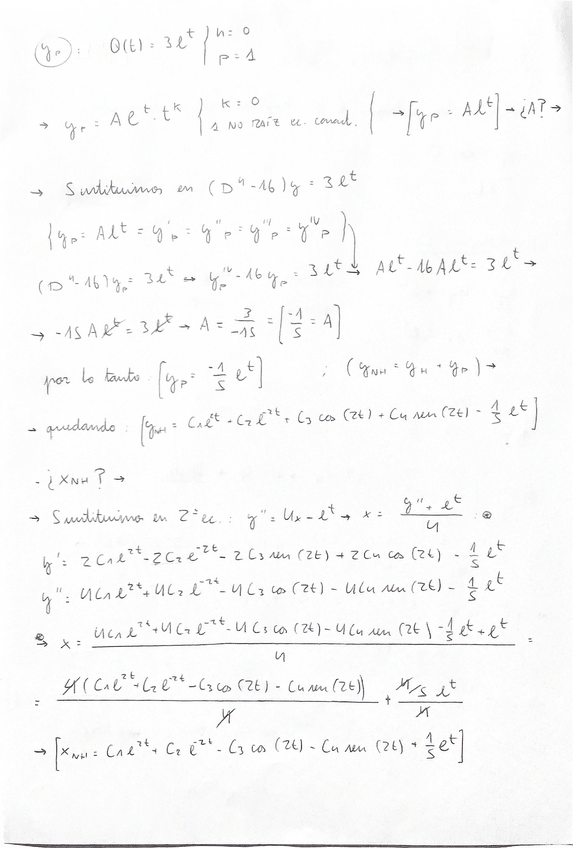 (yp): Q(t) = 3e^t { n = 0 p = 1
→ yp = A e^t · t^k { k = 0 1 NO RAÍZ ec. caract. { → [yp = Ae^t] → ¿A? →
→ Sustituimos en (D⁴-16)y = 3e^t
{yp = Ae^t = y'p = y''p = y'''p = y^IVp}
(D⁴-16)yp = 3e^t ↔ yp^IV - 16yp = 3e^t → Ae^t - 16Ae^t = 3e^t →
→ -15Ae^t = 3e^t → A = 3/-15 = [-1/5 = A]
por lo tanto [yp = -1/5 e^t] ; (yNH = yH + yp) →
→ quedando: [yNH = C1e^2t + C2e^-2t + C3 cos(2t) + C4 sen(2t) - 1/5 e^t]
- ¿XNH? →
→ Sustituimos en 2ª ec.: y'' = 4x - e^t → x = y'' + e^t / 4 :
y' = 2C1e^2t - 2C2e^-2t - 2C3 sen(2t) + 2C4 cos(2t) - 1/5 e^t
y'' = 4C1e^2t + 4C2e^-2t - 4C3 cos(2t) - 4C4 sen(2t) - 1/5 e^t
→ x = 4C1e^2t + 4C2e^-2t - 4C3 cos(2t) - 4C4 sen(2t) - 1/5 e^t + e^t / 4 =
= 4(C1e^2t + C2e^-2t - C3 cos(2t) - C4 sen(2t)) / 4 + 4/5 e^t / 4
→ [XNH = C1e^2t + C2e^-2t - C3 cos(2t) - C4 sen(2t) + 1/5 e^t]